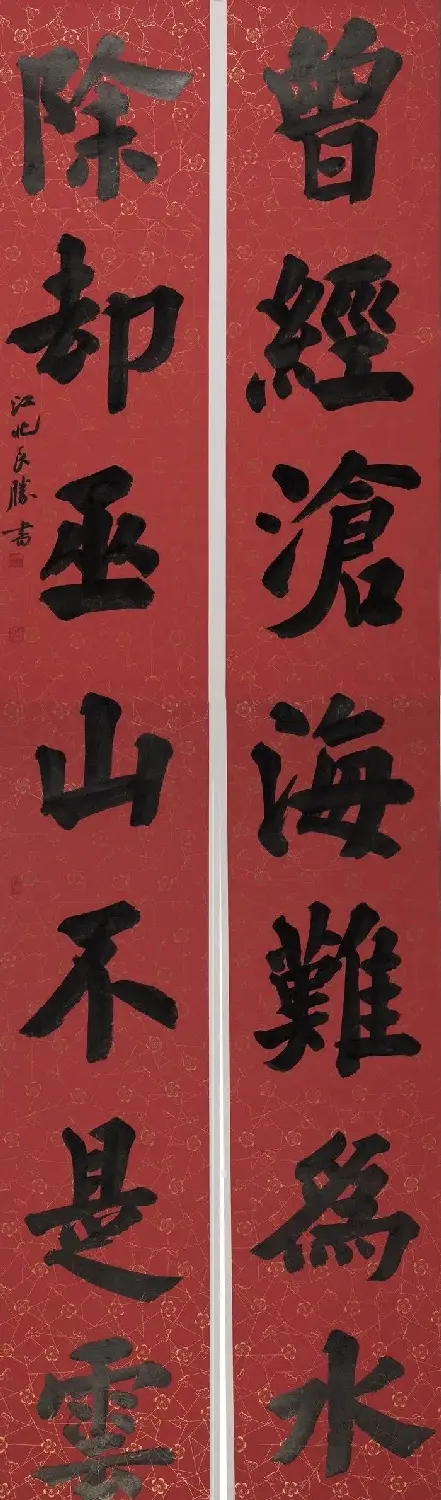 曾經滄海難為水
除却巫山不是雲
江北良勝書